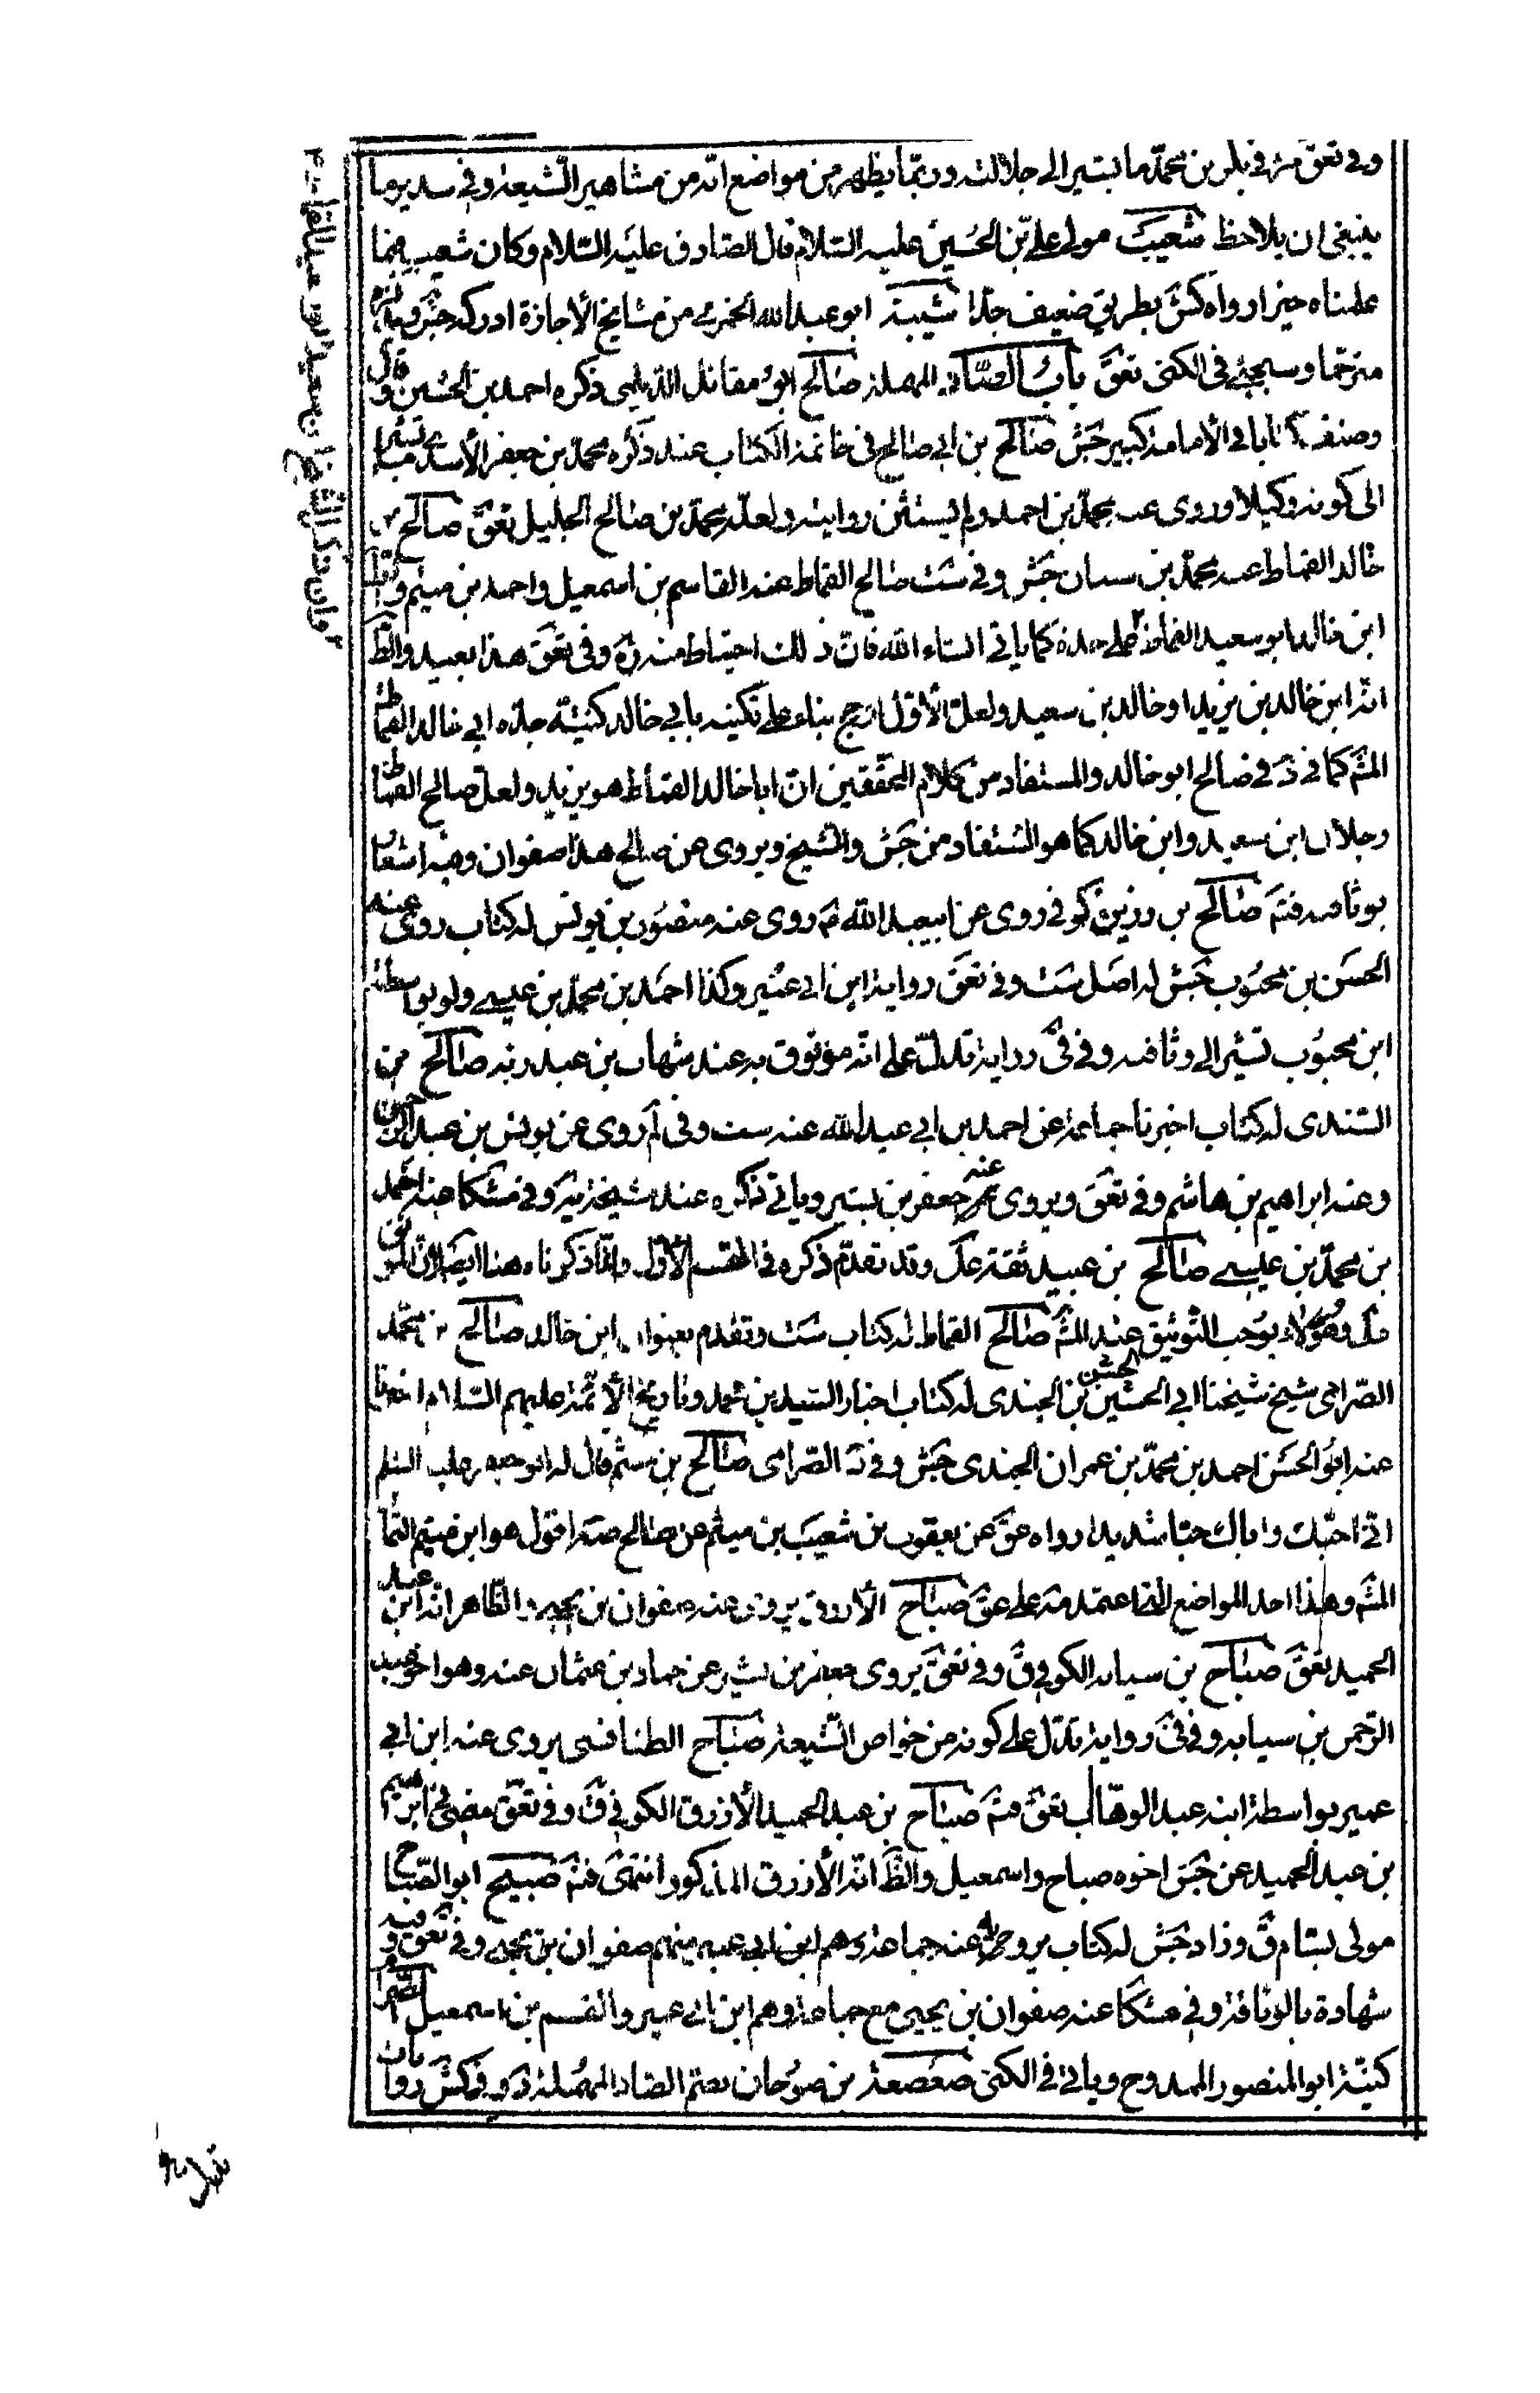 وفى تعق مر فى بكر بن محمد ما يشير الى جلالته وربما يظهر من مواضع انه من مشاهير الشيعة وفى سدير ما
ينبغى ان يلاحظ شعيب مولى على بن الحسين عليه السلام قال الصادق عليه السلام وكان شعيب فيما
علمناه خيرا رواه كش بطريق ضعيف جدا شيبة ابو عبد الله من مشايخ الاجازة ادركه جش
مترحما وسيجئ فى الكنى تعق باب الصاد المهملة صالح ابو مقاتل الديلمى ذكره احمد بن الحسين وقال
وصنف كتابا فى الامامة كبير جش صالح بن ابى صالح فى خاتمة الكتاب عند ذكره محمد بن جعفر الاسدى
الى كونه وكيلا وروى عنه محمد بن احمد ولم يستثن روايته ولعله محمد بن صالح الجليل تعق صالح بن
خالد القماط عنه محمد بن سنان جش وفى ست صالح القماط عنه القاسم بن اسمعيل واحمد بن ميثم
ابن خالد ابو سعيد القماط على حدة كما ياتى انشاء الله فان ذلك احتياط منه ره وفى تعق هذا بعيد والظ
انه ابن خالد بن يزيد او خالد بن سعيد ولعل الاول ارجح بناء على تكنيه بابى خالد كنية جده ابى خالد القماط
المش كما فى ذ فى صالح ابو خالد والمستفاد من كلام المحققين ان ابا خالد القماط هو يزيد ولعل صالح القماط
رجلان ابن سعيد وابن خالد كما هو المستفاد من جش والشيخ ويروى عن صالح هذا صفوان وفيه اشعار
بوثاقته فتم صالح بن رزين كوفى روى عن ابيعبد الله ع روى عنه منصور بن يونس له كتاب روى عنه
الحسن بن محبوب جش له اصل ست وفى تعق رواية ابن ابى عمير وكذا احمد بن محمد بن عيسى ولو بواسطة
ابن محبوب تشير الى وثاقته وفى فى رواية تدل على انه موثوق به عند شهاب بن عبد ربه صالح بن
السندى له كتاب اخبرنا جماعة عن احمد بن ابى عبد الله عنه ست وفى لم روى عن يونس بن عبد الرحمن
وعنه ابراهيم بن هاشم وفى تعق ويروى عنه جعفر بن بشير وياتى ذكره عند شيخه وفى مشكا عنه احمد
بن محمد بن عيسى صالح بن عبيد ثقة وقد تقدم ذكره فى القسم الاول وانما ذكرناه هنا ايضا لان
وهؤلاء يوجب التوثيق عند المش صالح القماط له كتاب ست وتقدم بعنوان ابن خالد صالح بن محمد
الصرامى شيخ شيخنا ابى الحسن بن الجندى له كتاب اخبار السيد بن محمد وتاريخ الائمة عليهم السلام اخبرنا
عنه ابو الحسن احمد بن محمد بن عمران الجندى جش وفى د الصرامى صالح بن ميثم قال له ابو جعفر عليه السلم
انى احبك واباك حبا شديدا رواه عق عن يعقوب بن شعيب بن ميثم عن صالح صه اقول هو ابن ميثم التمار
المش وهذا احد المواضع التى اعتمد صه على عق صباح الازرق يروى عنه صفوان بن يحيى والظاهر انه ابن عبد
الحميد تعق صباح بن سيابه الكوفى ق وفى تعق يروى جعفر بن بشير عن حماد بن عثمان عنه وهو اخو عبد
الرحمن بن سيابه وفى فى رواية تدل على كونه من خواص الشيعة صباح الطنافسى يروى عنه ابن ابى
عمير بواسطة ابنه عبد الوهاب تعق فتم صباح بن عبد الحميد الازرق الكوفى ق وفى تعق مضى فى ابراهيم
بن عبد الحميد عن جش اخوه صباح واسمعيل والظ انه الازرق المذكور انتهى فتم صبيح ابو الصباح
مولى بسام ق وزاد جش له كتاب يرويه عنه جماعة وهم ابن ابى عمير منهم صفوان بن يحيى وفى تعق وفيه
شهادة بالوثاقة وفى مشكا عنه صفوان بن يحيى مع جماعة وهم ابن ابى عمير والقسم بن اسمعيل
كنيته ابو المنصور الممدوح وياتى فى الكنى صعصعة بن صوحان بضم الصاد المهملة وفى كش